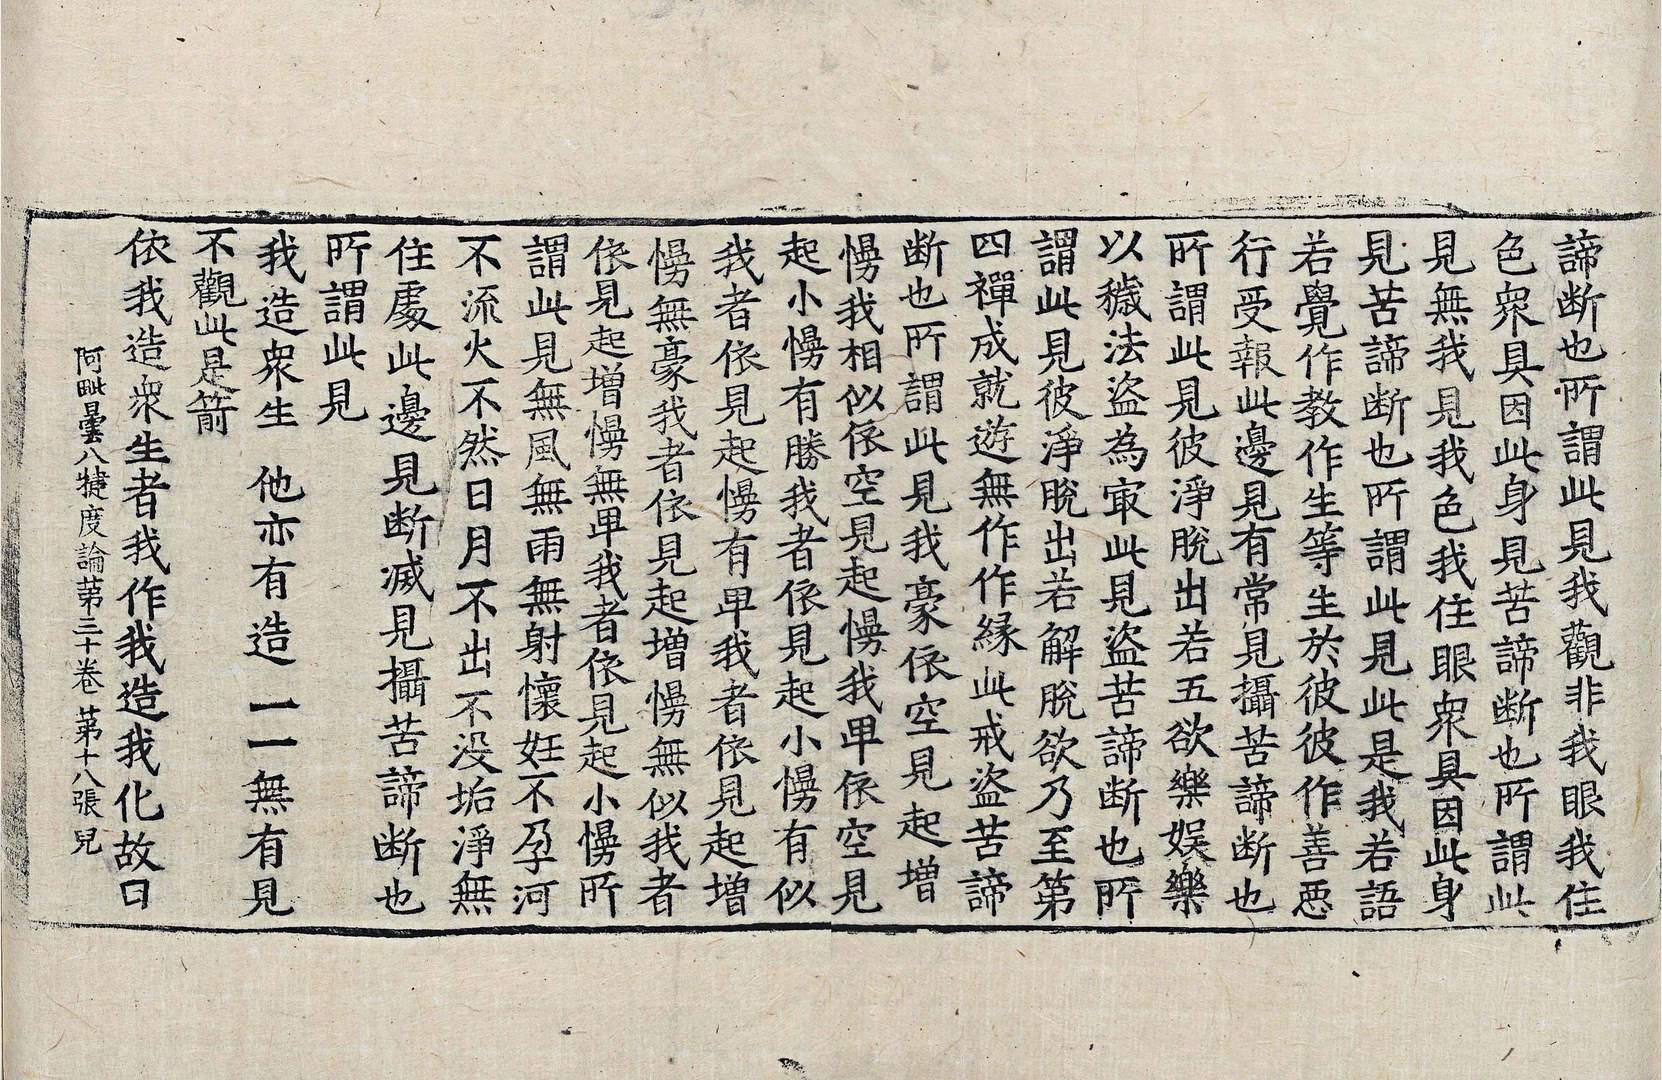 諦断也所謂此見我觀非我眼我住
色衆具因此身見苦諦断也所謂此
見無我見我色我住眼衆具因此身
見苦諦断也所謂此見此是我若語
若覺作教作生等生於彼彼作善惡
行受報此邊見有常見攝苦諦断也
所謂此見彼淨脫出若五欲樂娛樂
以穢法盜為㝡此見盜苦諦断也所
謂此見彼淨脫出若解脫欲乃至第
四禪成就遊無作作緣此戒盜苦諦
断也所謂此見我豪依空見起增
慢我相似依空見起慢我卑依空見
起小慢有勝我者依見起小慢有似
我者依見起慢有卑我者依見起增
慢無豪我者依見起增慢無似我者
依見起增慢無卑我者依見起小慢所
謂此見無風無雨無射懷妊不孕河
不流火不然日月不出不没垢淨無
住處此邊見断滅見攝苦諦断也
所謂此見
我造衆生　他亦有造　一一無有見
不觀此是箭
依我造衆生者我作我造我化故曰
阿毗曇八犍度論第三十卷 第十八張 兒